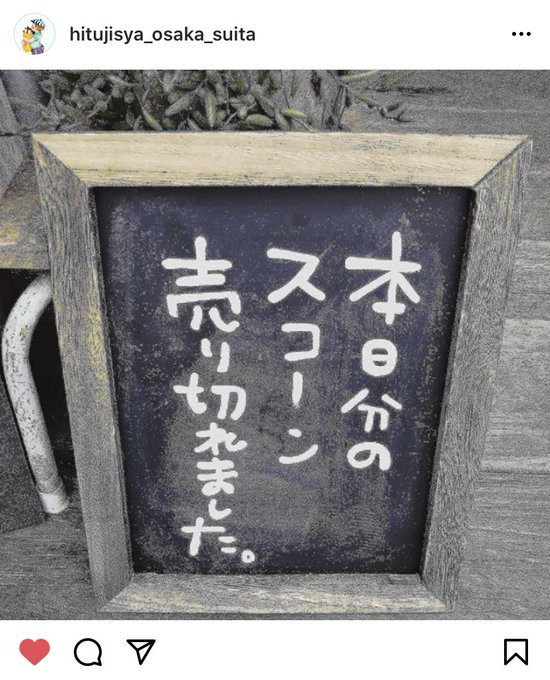 hitujisya_osaka_suita
本日分の
スコーン
売り切れました。